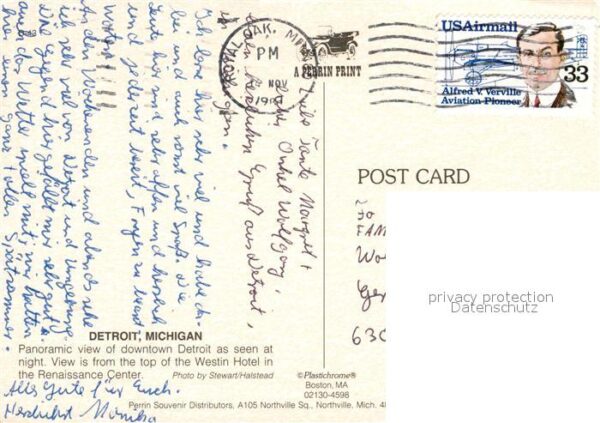 ROYAL OAK, MI
PM
NOV
A PERRIN PRINT
USAirmail
33
Alfred V. Verville
Aviation Pioneer
POST CARD
privacy protection
Datenschutz
Liebe Tante Margret +
lieber Onkel Wolfgang,
Gruß aus Detroit,
Ich lerne hier sehr viel und habe da-
bei und auch sonst viel Spaß. Die
Leute hier sind sehr offen und herzlich
und jederzeit bereit, Fragen zu beant
worten.
An den Wochenenden und abends sehe
ich sehr viel von Detroit und Umgebung.
Die Gegend hier gefällt mir sehr gut u.
auch das Wetter spielt mit; wir hatten
hier einen ganz tollen Spätsommer.
Alles Gute für Euch.
Herzlichst Monika
DETROIT, MICHIGAN
Panoramic view of downtown Detroit as seen at
night. View is from the top of the Westin Hotel in
the Renaissance Center.
Photo by Stewart/Halstead
©Plastichrome®
Boston, MA
02130-4598
Perrin Souvenir Distributors, A105 Northville Sq., Northville, Mich. 4
TO
FAM
Wo
Ger
630